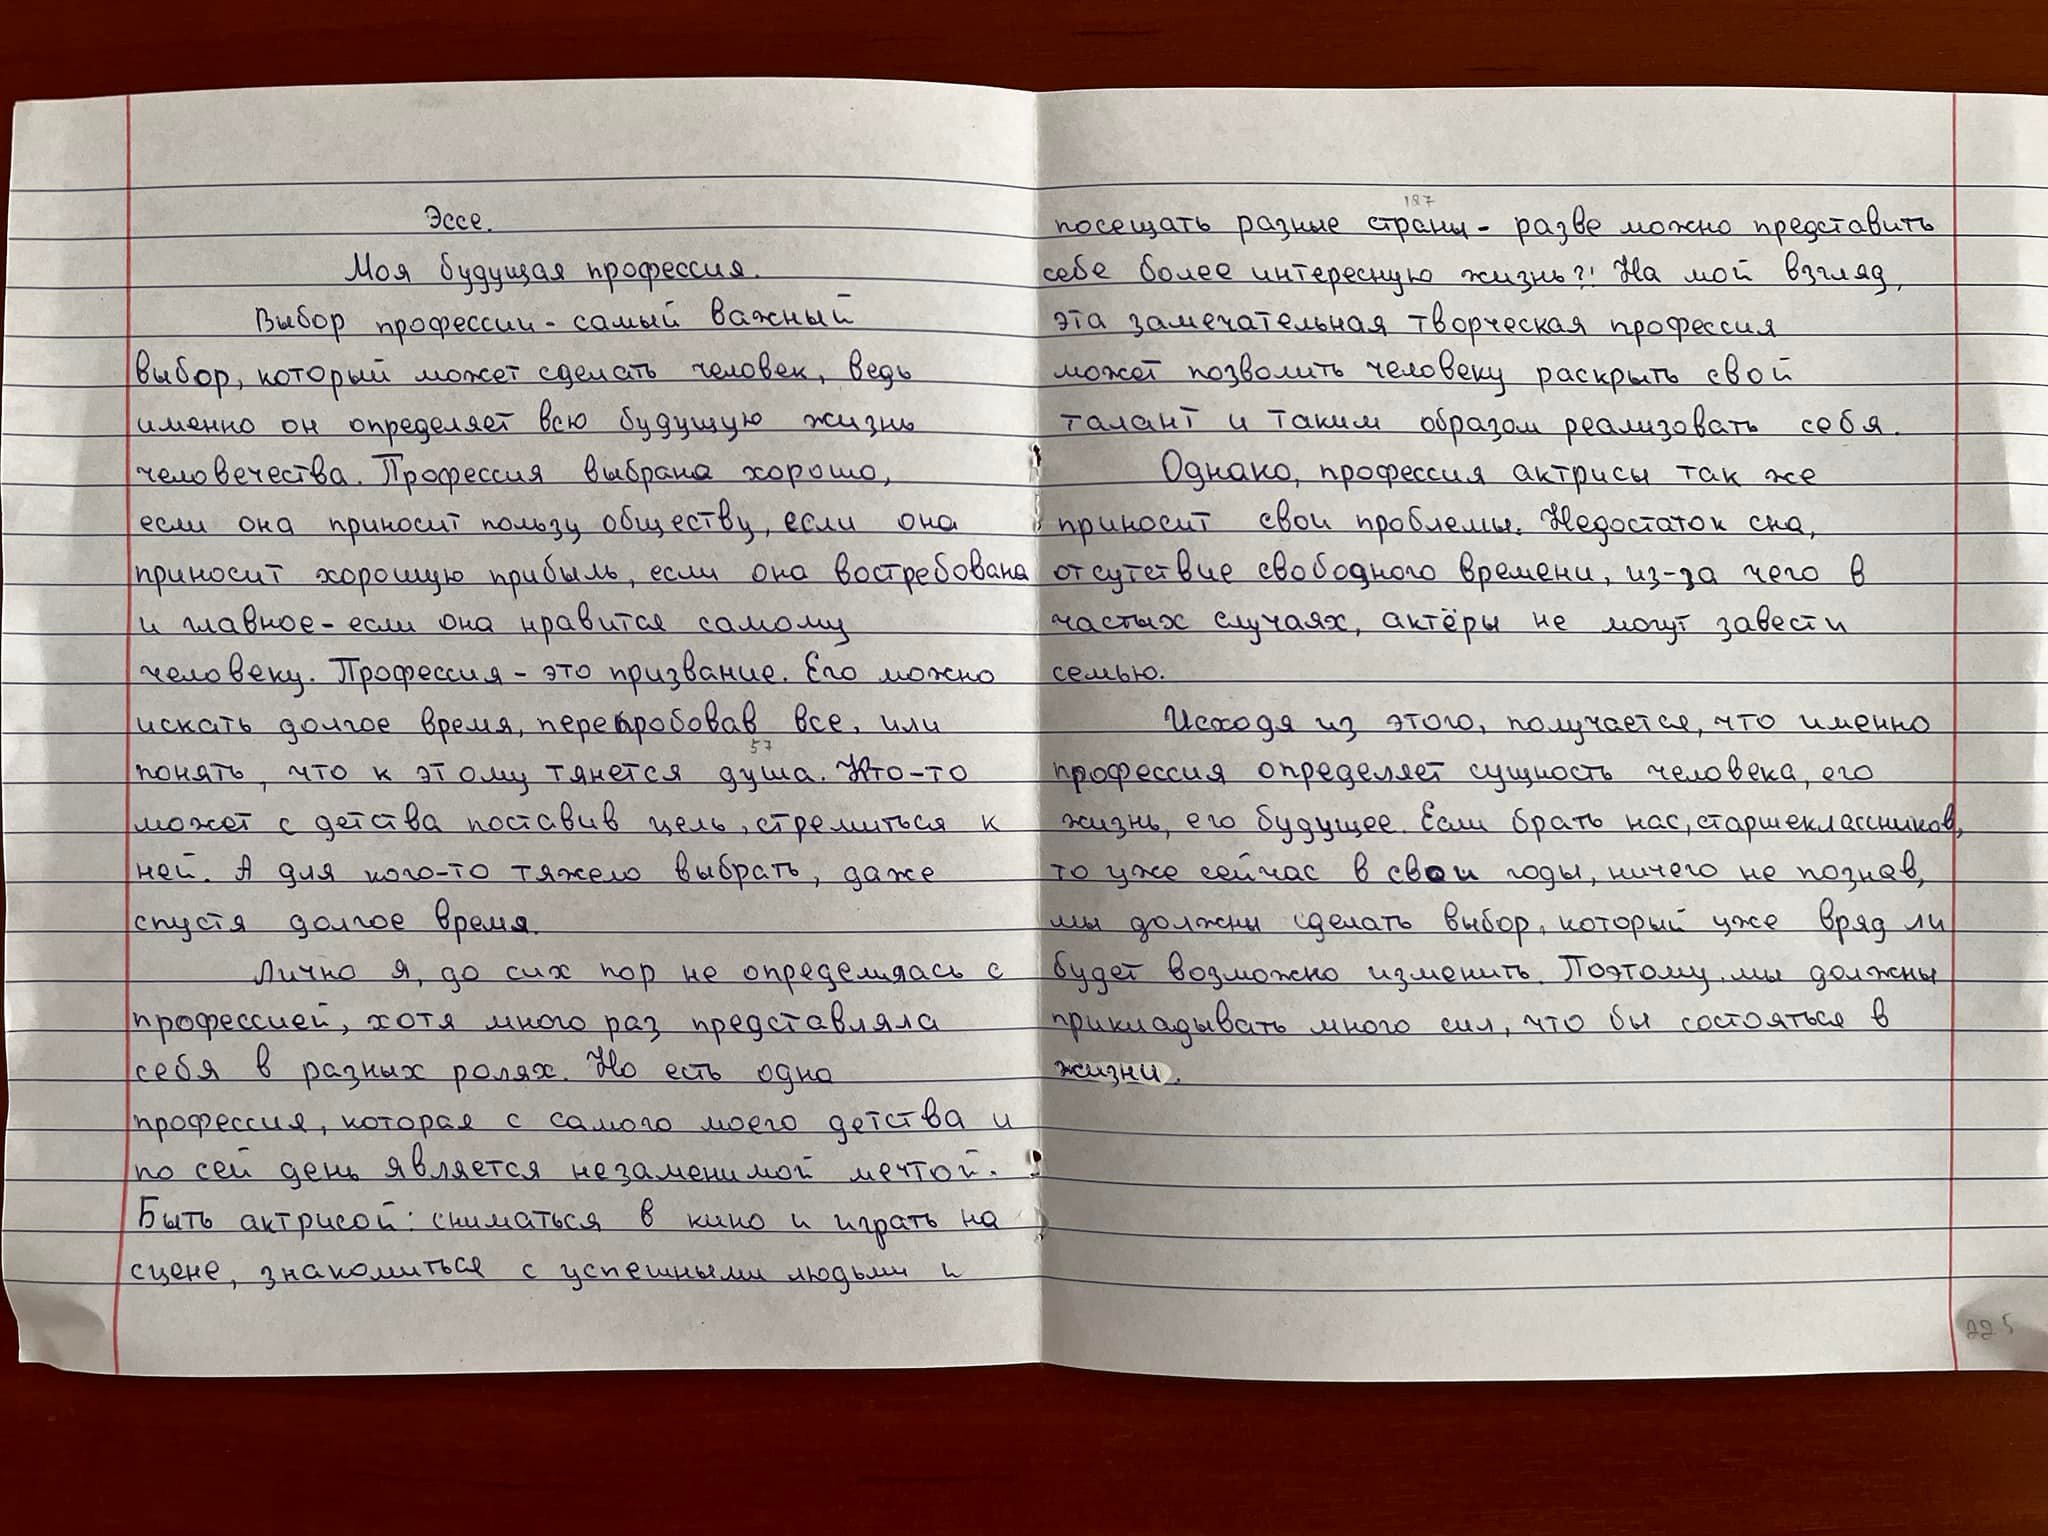 Эссе.
Моя будущая профессия.
Выбор профессии - самый важный
выбор, который может сделать человек, ведь
именно он определяет всю будущую жизнь
человечества. Профессия выбрана хорошо,
если она приносит пользу обществу, если она
приносит хорошую прибыль, если она востребована
и главное - если она нравится самому
человеку. Профессия - это призвание. Его можно
искать долгое время, перепробовав все, или
57
понять, что к этому тянется душа. Кто-то
может с детства поставив цель, стремиться к
ней. А для кого-то тяжело выбрать, даже
спустя долгое время.
Лично я, до сих пор не определилась с
профессией, хотя много раз представляла
себя в разных ролях. Но есть одна
профессия, которая с самого моего детства и
по сей день является незаменимой мечтой.
Быть актрисой: сниматься в кино и играть на
сцене, знакомиться с успешными людьми и
187
посещать разные страны - разве можно представить
себе более интересную жизнь?! На мой взгляд,
эта замечательная творческая профессия
может позволить человеку раскрыть свой
талант и таким образом реализовать себя.
Однако, профессия актрисы так же
приносит свои проблемы. Недостаток сна,
отсутствие свободного времени, из-за чего в
частых случаях, актёры не могут завести
семью.
Исходя из этого, получается, что именно
профессия определяет сущность человека, его
жизнь, его будущее. Если брать нас, старшеклассников,
то уже сейчас в свои годы, ничего не познав,
мы должны сделать выбор, который уже вряд ли
будет возможно изменить. Поэтому мы должны
прикладывать много сил, что бы состояться в
жизни.
225